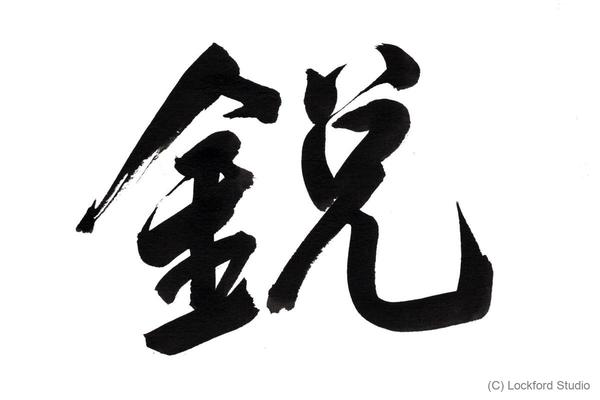 鋭
(C) Lockford Studio